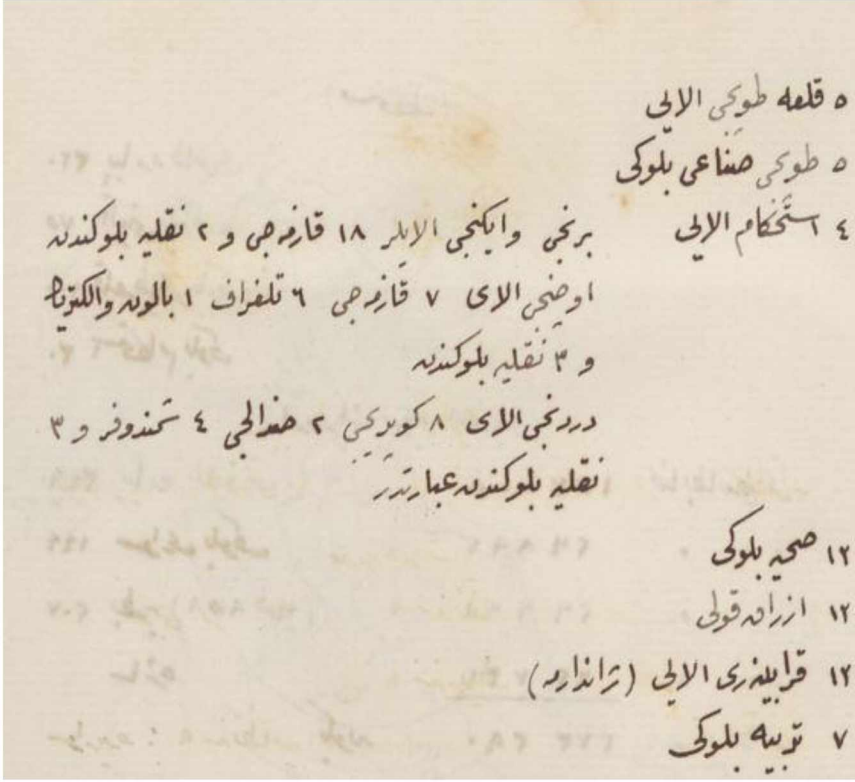 ٥ قلعه طوپجی الایی
٥ طوپجی صناعی بلوكی
٤ استحكام الایی برنجی وایكنجی الایلر ١٨ قازمه‌جی و ٢ نقلیه بلوكندن
اوچنجی الای ٧ قازمه‌جی ٦ تلغراف ١ بالون والكتریك
و ٣ نقلیه بلوكندن
دردنجی الای ٨ كوپریجی ٢ صندالجی ٤ شمندوفر و ٣
نقلیه بلوكندن عبارتدر
١٢ صحیه بلوكی
١٢ ارزاق قولی
١٢ قرابینری الایی (ژاندارمه)
٧ تربیه بلوكی